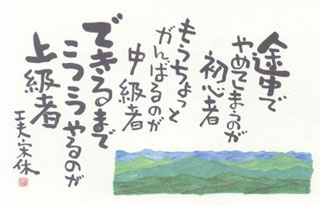 途中で
やめてしまうのが
初心者
もうちょっと
がんばるのが
中級者
できるまで
こつこつやるのが
上級者